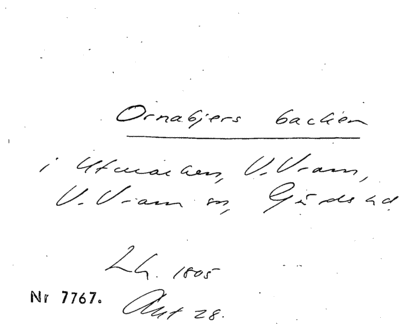 Ornabjers backen
i Utmarken, V. Vram,
V. Vram sn, Gärds hd.
Lh. 1805
Nr 7767. Akt 28.